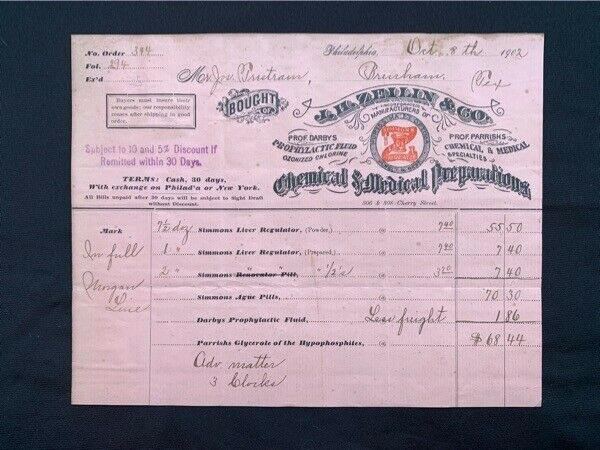 No. Order 394
Fol. 294
Ex'd
Philadelphia, Oct. 8th 1902
Mr Jos. Brenham, Tex
Buyers must insure their
own goods; our responsibility
ceases after shipping in good
order.
BOUGHT OF
J.H. ZEILIN & CO.
INCORPORATED
MANUFACTURERS OF
PROF. DARBYS
PROPHYLACTIC FLUID
OZONIZED CHLORINE
PROF. PARRISH'S
CHEMICAL & MEDICAL
SPECIALTIES
Subject to 10 and 5% Discount If
Remitted within 30 Days.
Chemical & Medical Preparations
306 & 308 Cherry Street.
TERMS: Cash, 30 days,
With exchange on Philad'a or New York.
All Bills unpaid after 30 days will be subject to Sight Draft
without Discount.
Mark
In full
Morgan
Line
7½ doz Simmons Liver Regulator, (Powder,) @ 7 40 55 50
1 " Simmons Liver Regulator, (Prepared,) @ 7 40 7 40
2 " Simmons Renovator Pill, " ½'s @ 3 70 7 40
Simmons Ague Pills, 70 30
Darbys Prophylactic Fluid, Less freight 1 86
Parrishs Glycerole of the Hypophosphites, @ $ 68 44
Adv. matter
3 Clocks